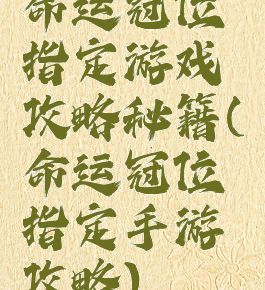 命运冠位
指定游戏
攻略秘籍(
命运冠位
指定手游
攻略)